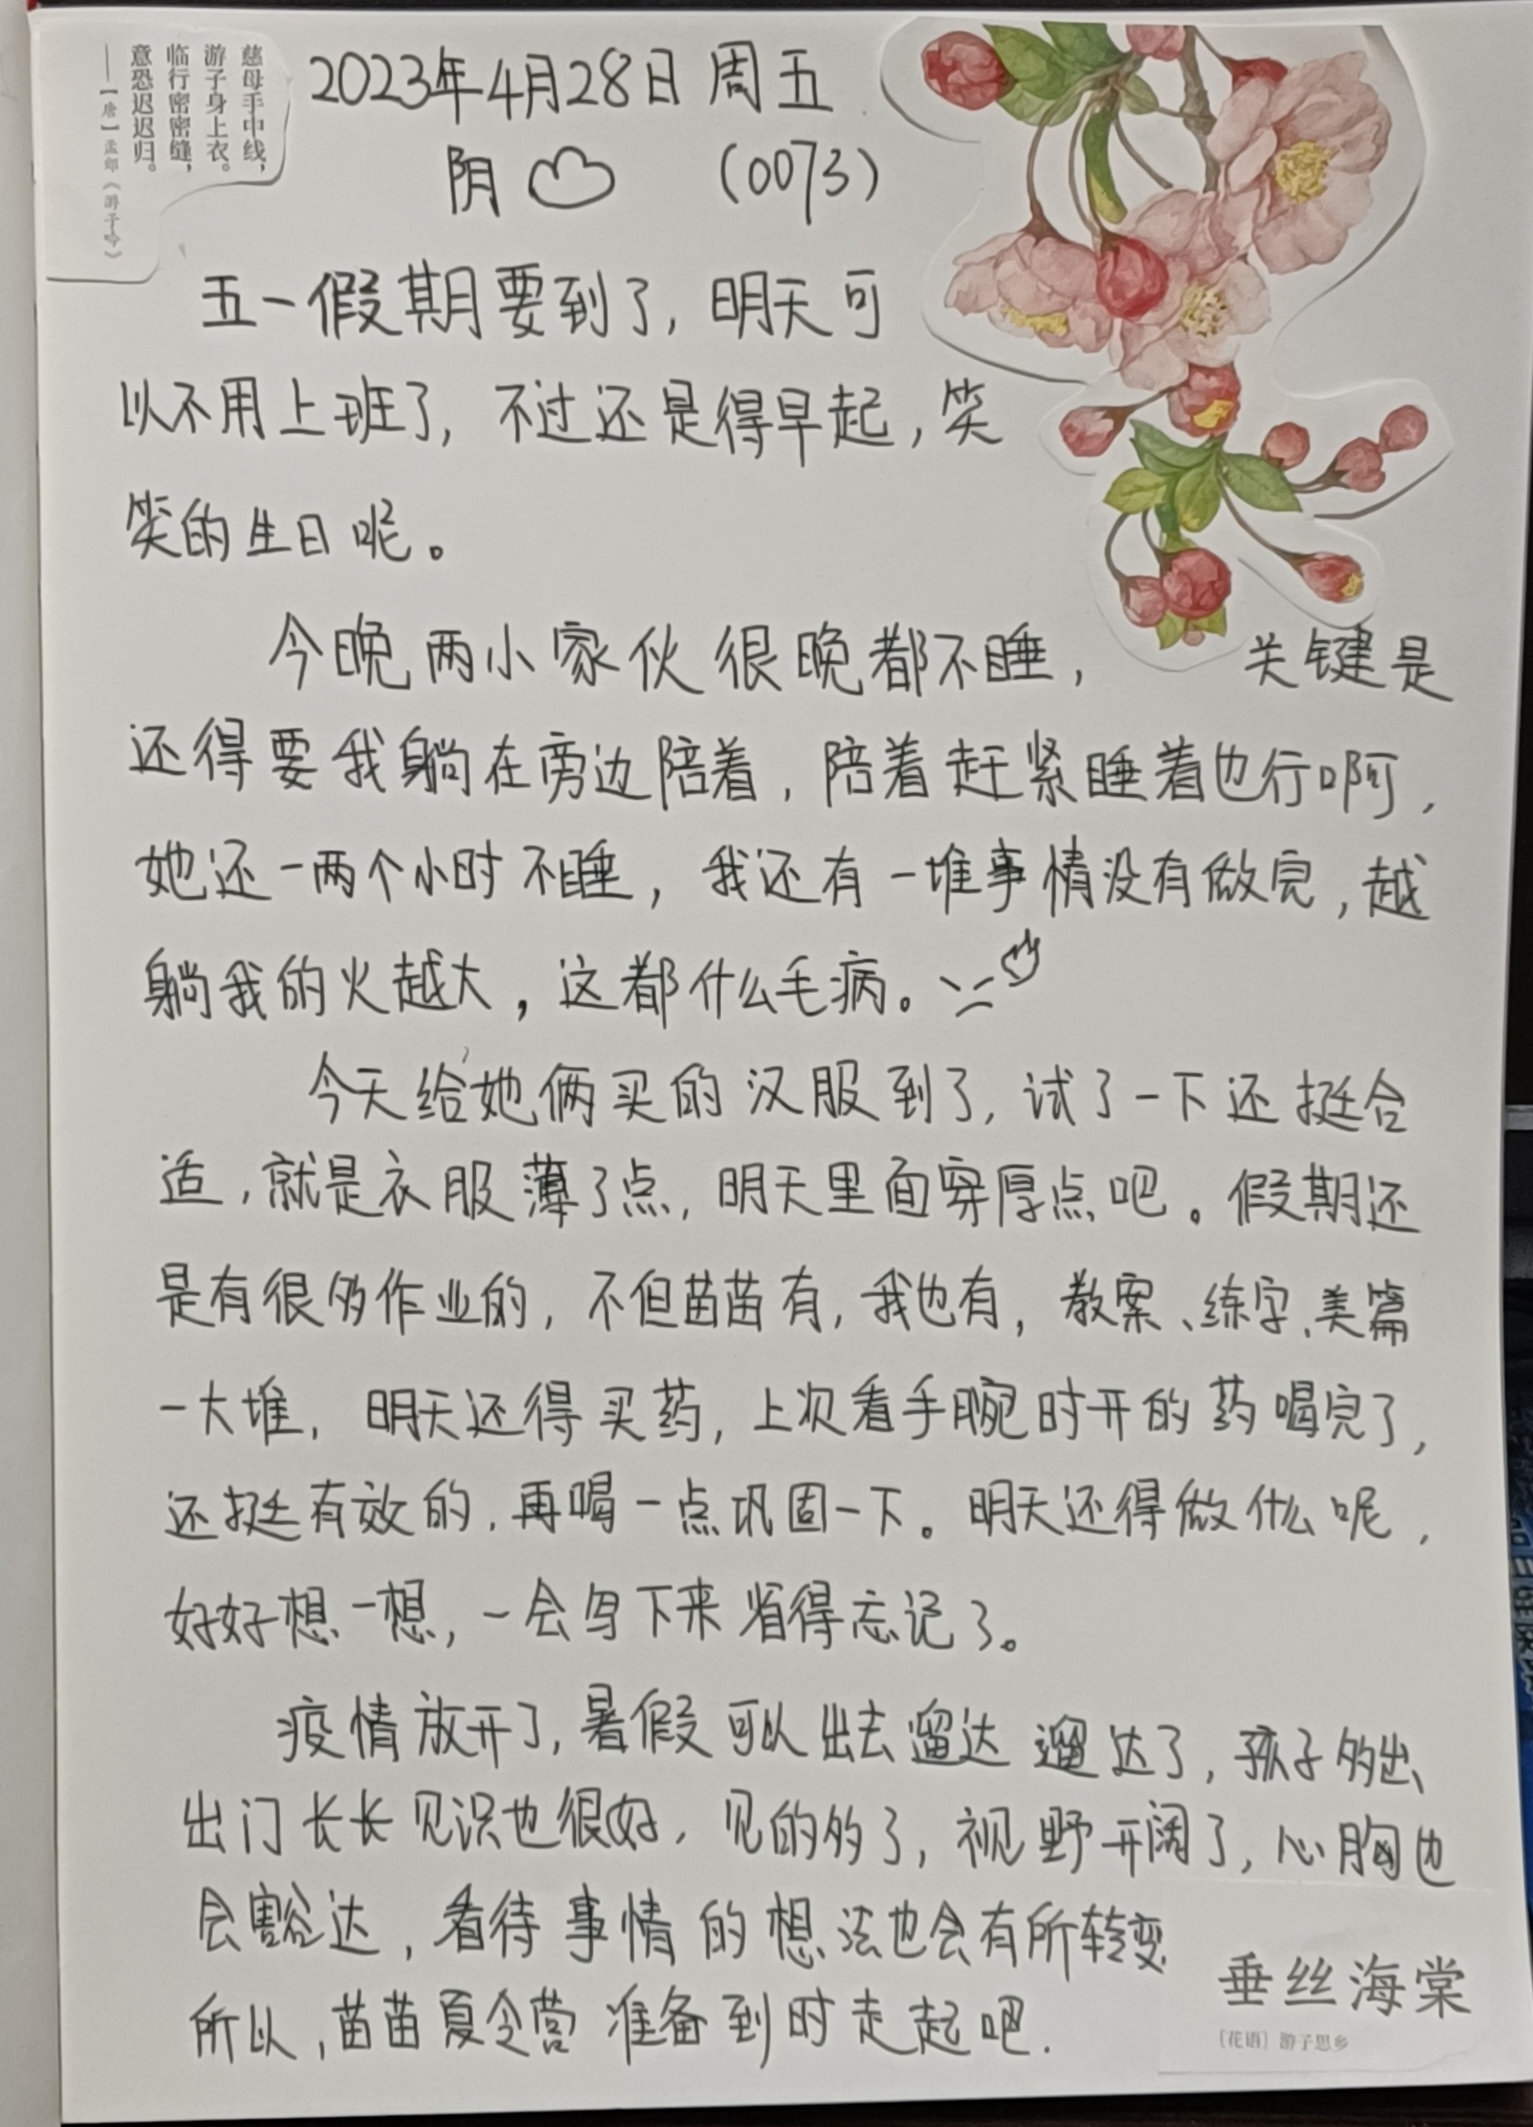 慈母手中线，
游子身上衣。
临行密密缝，
意恐迟迟归。
——【唐】孟郊《游子吟》
2023年4月28日 周五
阴 (0073)
五一假期要到了，明天可
以不用上班了，不过还是得早起，笑
笑的生日呢。
今晚两小家伙很晚都不睡，关键是
还得要我躺在旁边陪着，陪着赶紧睡着也行啊，
她还一两个小时不睡，我还有一堆事情没有做完，越
躺我的火越大，这都什么毛病。
今天给她俩买的汉服到了，试了一下还挺合
适，就是衣服薄了点，明天里面穿厚点吧。假期还
是有很多作业的，不但苗苗有，我也有，教案、练字、美篇
一大堆，明天还得买药，上次看手腕时开的药喝完了，
还挺有效的，再喝一点巩固一下。明天还得做什么呢，
好好想一想，一会写下来省得忘记了。
疫情放开了，暑假可以出去遛达遛达了，孩子多出
出门长长见识也很好，见的多了，视野开阔了，心胸也
会豁达，看待事情的想法也会有所转变
所以，苗苗夏令营准备到时走起吧.
垂丝海棠
［花语］游子思乡